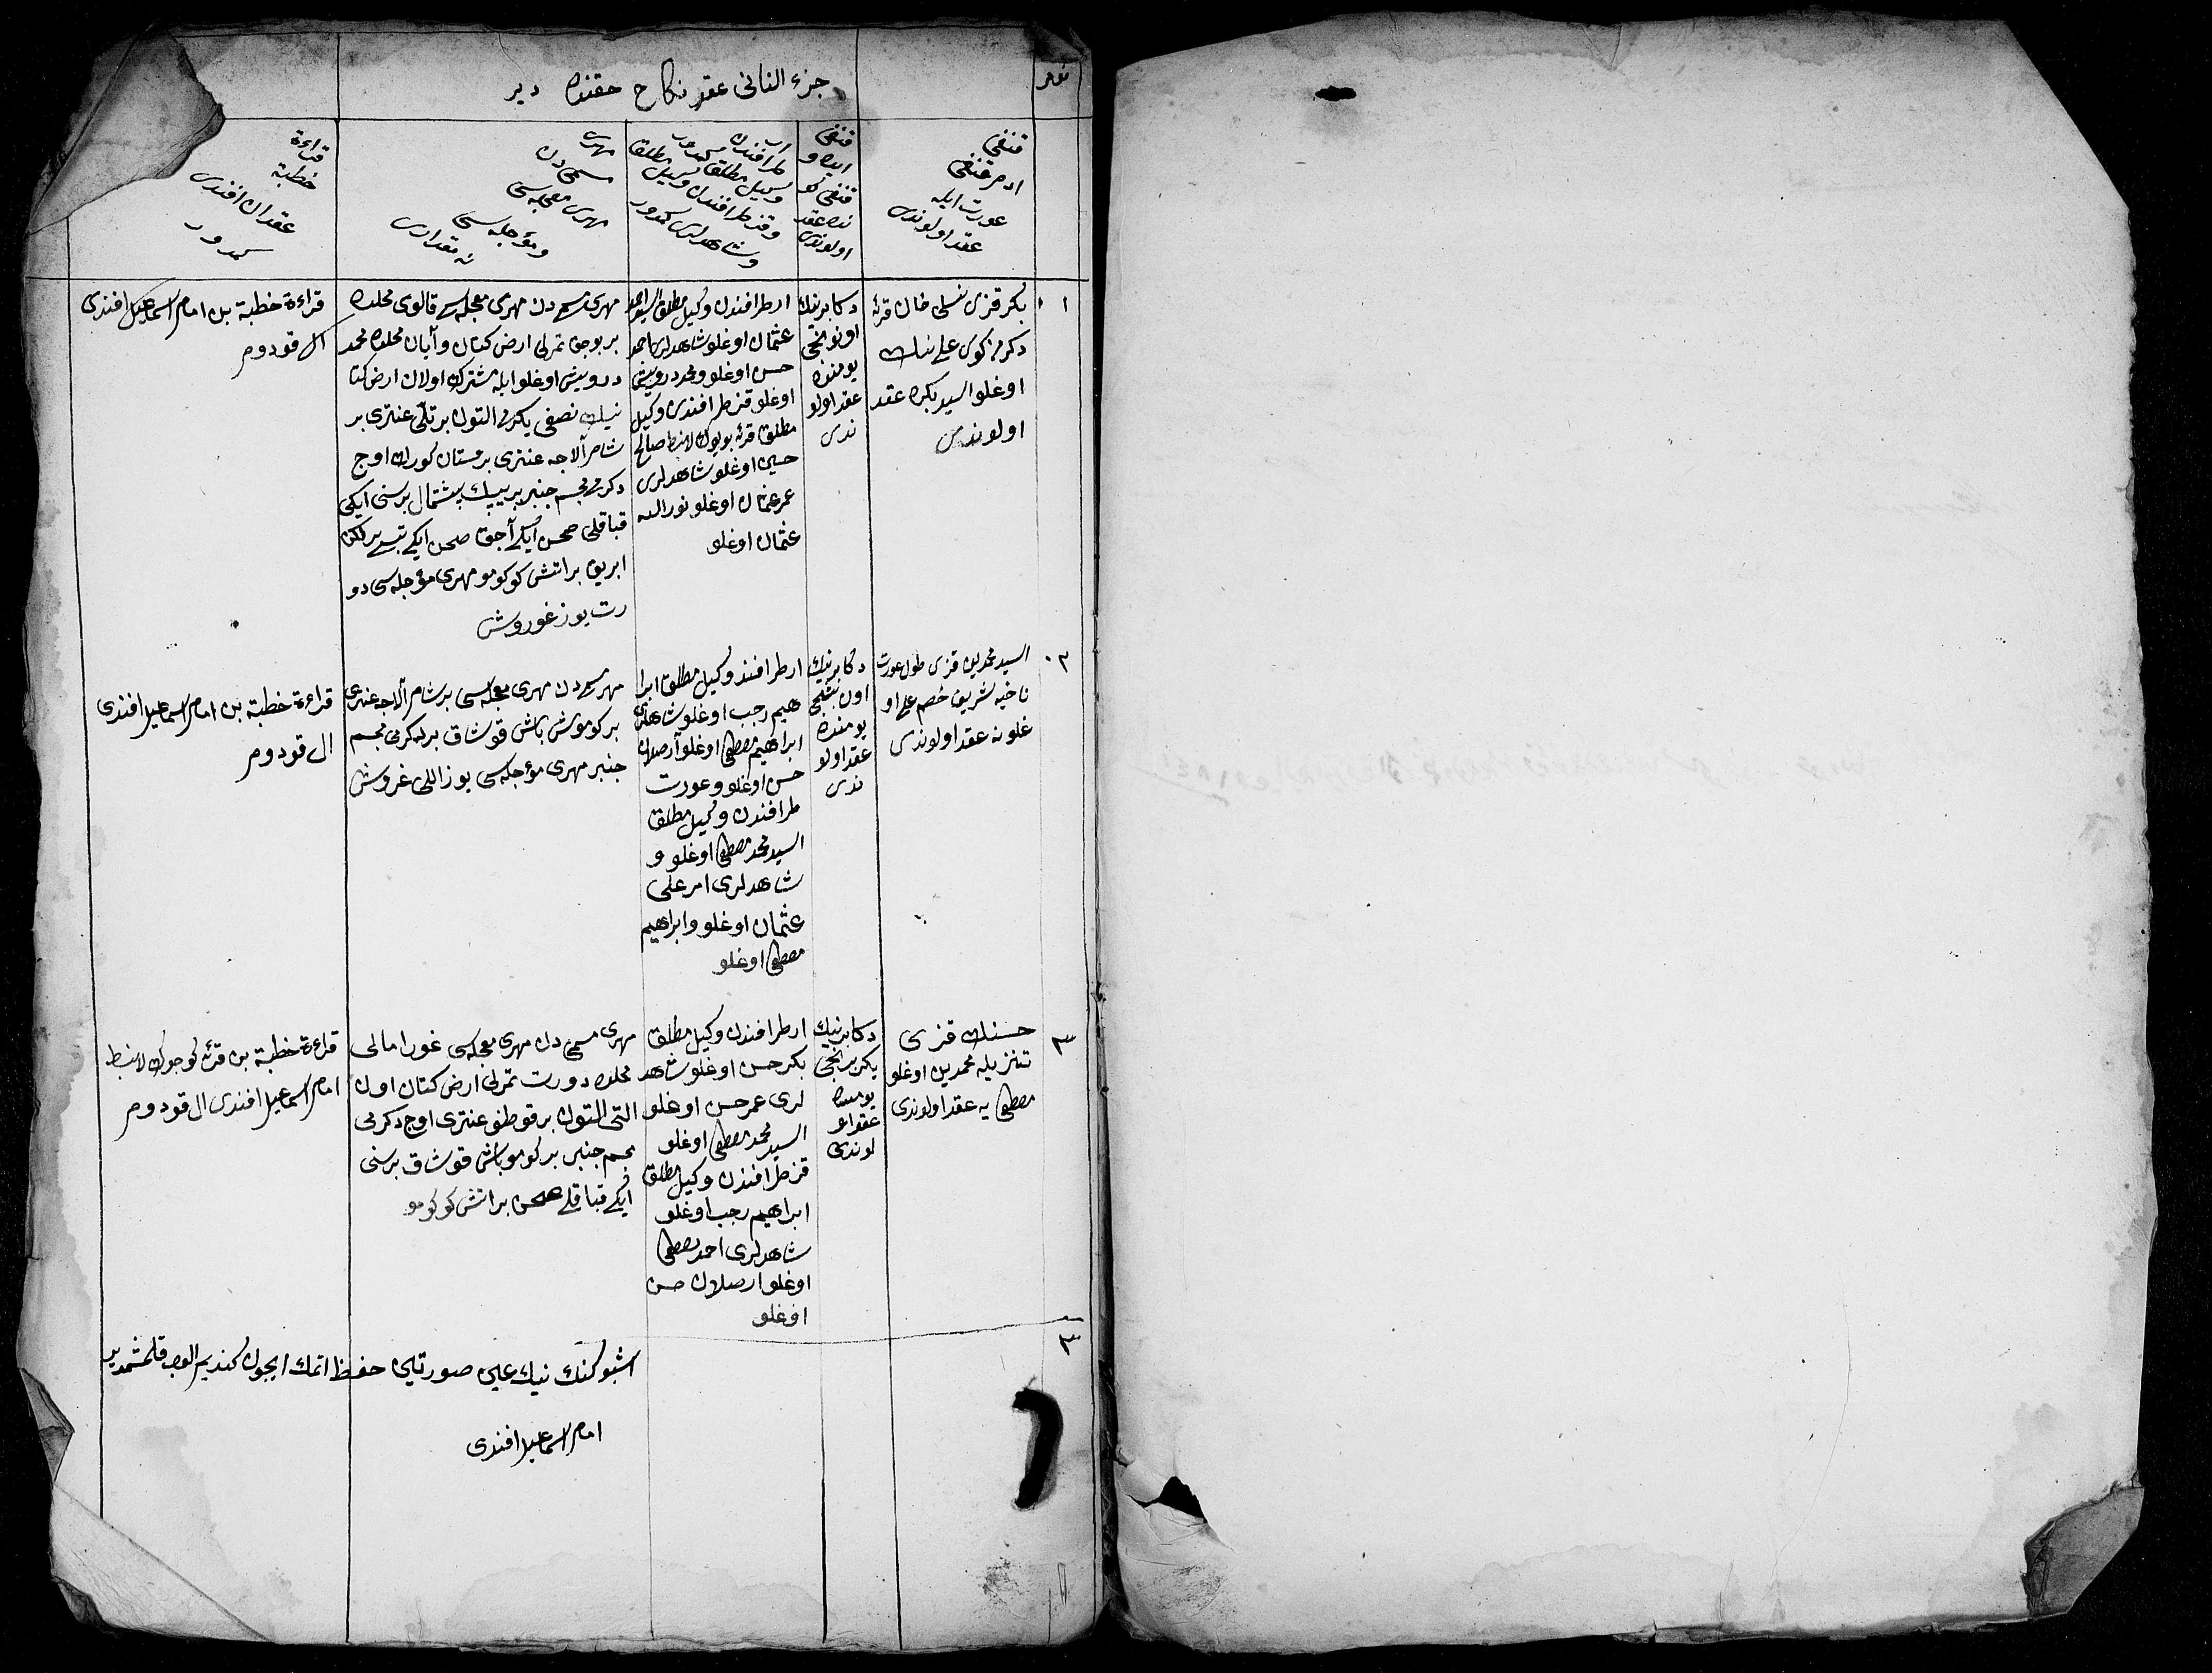 نومر
جزء الثانی عقد نکاح حقنده دیر
قنغی
ادم قنغی
عورت ایله
عقد اولوندی
قنغی
ایده و
قنغی کو
نده عقد
اولوندی
ار
طرافندن
وکیل مطلقا کمدور
و قز طرافندن وکیل مطلقا
و شاهدلری کمدور
مهری
مسمی دن
مهری معجله سی
و مؤجله سی
نه مقداری
قراءة
خطبة
عقد ان افندی
کمدور
١
بکر قزی
دکرمن کوی علی نیك
اوغلو السید بکره عقد
اولوندی
دکابرنیك
اونونجی
یومنده
عقد اولو
ندی
ار طرافندن وکیل مطلق السید احمد
عثمان اوغلو شاهدلری احمد
حسن اوغلو و محمد درویش
اوغلو قز طرافندن وکیل
مطلق قریه بویوك صالح
حسین اوغلو شاهدلری
عمر عثمان اوغلو نور الله
عثمان اوغلو
مهری مسمی دن مهری معجله سی قالوی محلده
بر بوجق تمرلی ارض کتان و آیان محلده محمد
درویش اوغلو ایله مشترك اولان ارض کتا
نیك نصفی یکرمی التون بر تللی عنتری بر
شام آلاجه عنتری بر مستان کورك اوچ
دکرمی مجسم جنبر بر ییپك پشتمال بر سنی ایکی
قباقلی صحن ایکی آجق صحن ایکی تبسی بر لکن
ابریق بر اتش کوکومو مهری مؤجله سی دو
رت یوز غوروش
قراءة خطبة بن امام اسماعیل افندی
ال قودوم
٢
السید محمدین قزی طول عورت
ناخیه شریف خصم علی او
غلونه عقد اولوندی
دکابرنیك
اون بشنجی
یومنده
عقد اولو
ندی
ار طرافندن وکیل مطلق ابرا
هیم رجب اوغلو شاهدلری
ابراهیم مصطفی اوغلو آرصلان
حسن اوغلو و عورت
طرافندن وکیل مطلقا
السید محمد مصطفی اوغلو و
شاهدلری امر علی
عثمان اوغلو و ابراهیم
مصطفی اوغلو
مهر مسمی دن مهری معجله سی بر شام آلاجه عنتری
بر کوموش باش قوشاق بر دکرمی مجسم
جنبر مهری مؤجله سی یوز اللی غروش
قراءة خطبة بن امام اسماعیل افندی
ال قودوم
٣
حسنك قزی
تنزیله محمدین اوغلو
مصطفی یه عقد اولوندی
دکابرنیك
یکرمی برنجی
یومنده
عقد او
لوندی
ار طرافندن وکیل مطلق
بکر حسن اوغلو شاهد
لری عمر حسن اوغلو
السید محمد مصطفی اوغلو
قز طرافندن وکیل مطلق
ابراهیم رجب اوغلو
شاهدلری احمد مصطفی
اوغلو ارصلان حسن
اوغلو
مهری مسمی دن مهری معجله سی غورامالی
محلده دورت تمرلی ارض کتان اون
التی التون بر قوطنو عنتری اوچ دکرمی
مجسم جنبر بر کومو باش قوشاق بر سنی
ایکی قباقلی صحن بر اتش کوکومو
قراءة خطبة بن قریه کوجوك
امام اسماعیل افندی ال قودوم
٣
اشبو کنك نیك عینی صورتلی حفظ اتمك ایچون کندیم الوب قلمشمدیر
امام اسماعیل افندی